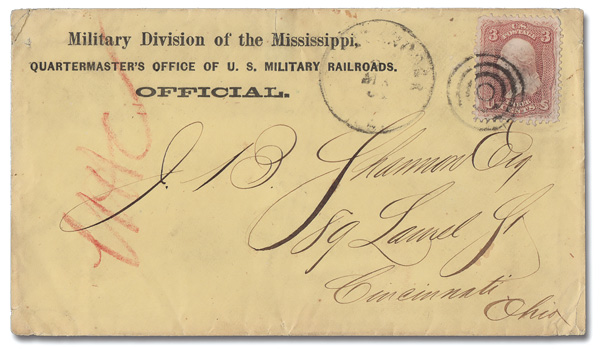 Military Division of the Mississippi,
QUARTERMASTER'S OFFICE OF U. S. MILITARY RAILROADS.
OFFICIAL.
3 U.S. 3
POSTAGE
J. B. Shannon Esq
89 Laurel St
Cincinnati
Ohio